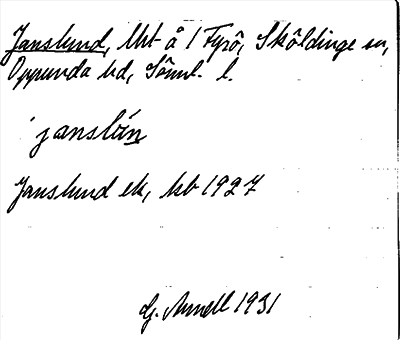 Janslund, lht å 1 Fyrö, Sköldinge sn,
Oppunda hd, Söml. l.
janslùn
Janslund ek, kb 1927
G. Arnell 1931